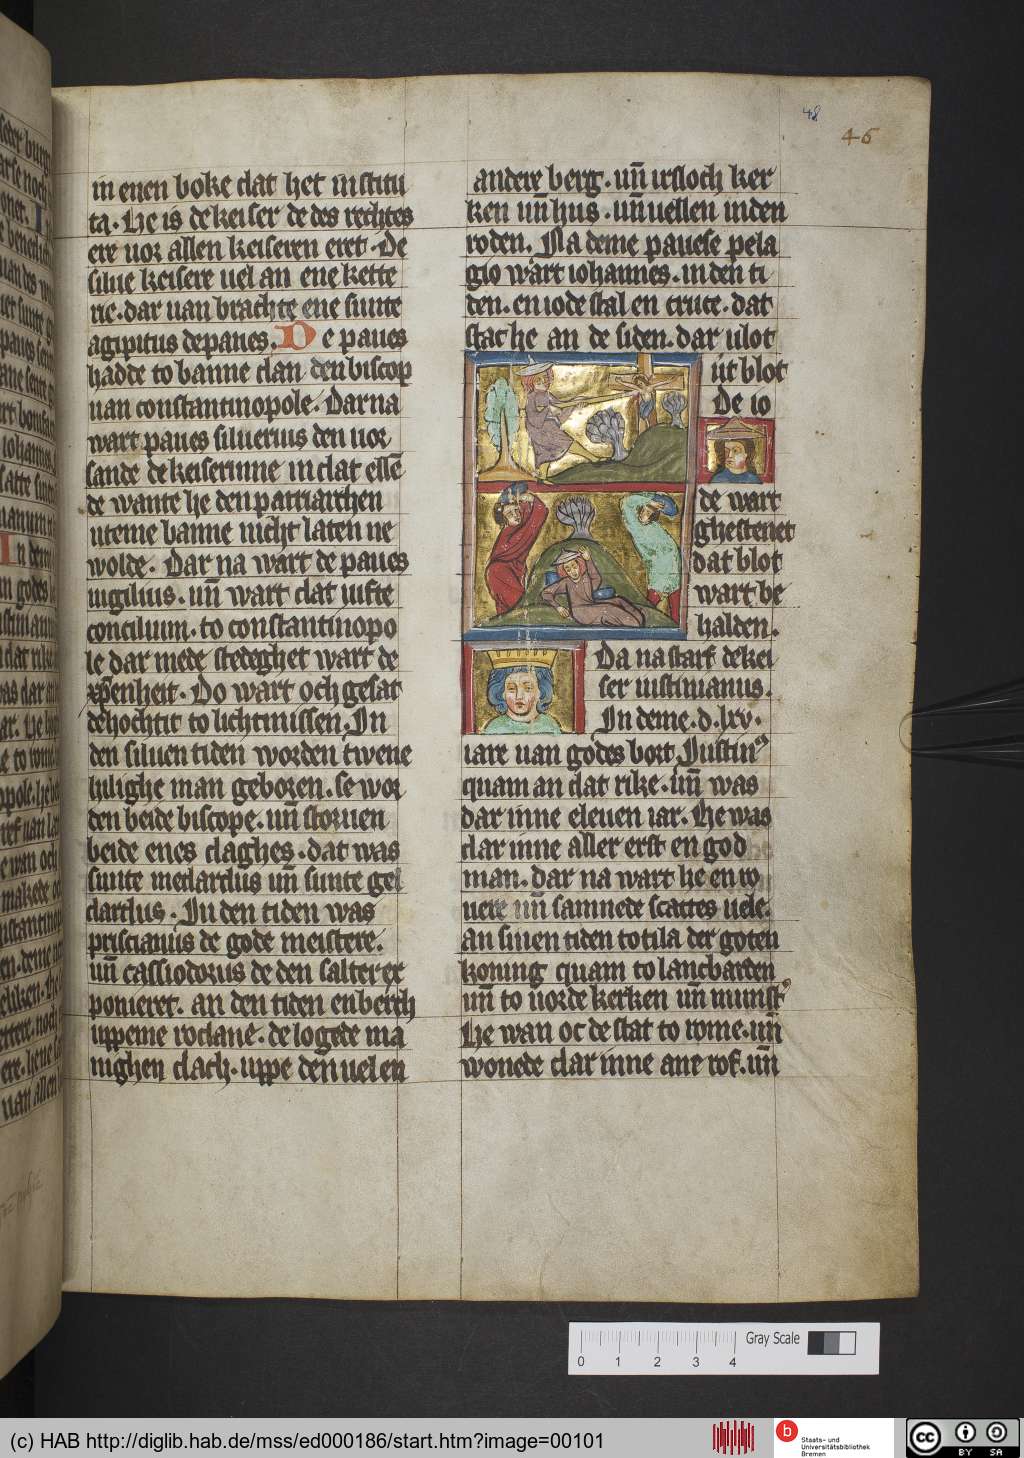 48
46
in enen boke dat het institu
ta. He is de keiser de des rechtes
ere uor allen keiseren eret. De
silue keisere uel an ene kette
rie. dar uan brachte ene sunte
agipitus de paues. De paues
hadde to banne dan den biscop
uan constantinopole. Dar na
wart paues siluerius den uor
sande de keiserinne in dat elle
de wante he den patriarchen
uteme banne nicht laten ne
wolde. Dar na wart de paues
uigilius. un̄ wart dat uifte
concilium. to constantinopo
le dar mede stedeghet wart de
xp̄enheit. Do wart och gesat
de hochtit to lichtmissen. In
den siluen tiden worden twene
hilighe man geboren. se wor
den beide biscope. un̄ storuen
beide enes daghes. dat was
sunte medardus un̄ sunte gel
dardus. In den tiden was
priscianus de gode meistere.
un̄ cassiodorus de den salter ex
poneret. an den tiden en berch
uppeme rodane. de logede ma
nighen dach. uppe den uel en
andere berg. un̄ irsloch ker
ken un̄ hus. un̄ uellen in den
roden. Na deme pauese pela
gio wart iohannes. in den ti
den. en iode stal en cruce. dat
stac he an de siden. dar ulot
ut blot
De io
de wart
ghestenet
dat blot
wart be
halden.
Da na starf de kei
ser iustinianus.
In deme. d. lxv.
iare uan godes bort. Iustin⁹
quam an dat rike. un̄ was
dar inne eleuen iar. He was
dar inne aller erst en god
man. dar na wart he en ro
uere un̄ samnede scattes uele.
An sinen tiden totila der goten
koning quam to lancbarden
un̄ to uorde kerken un̄ munst⁹
He wan oc de stat to rome. un̄
wonede dar inne ane rof. un̄
Gray Scale
0 1 2 3 4
(c) HAB http://diglib.hab.de/mss/ed000186/start.htm?image=00101
b
Staats- und
Universitätsbibliothek
Bremen
cc
BY SA